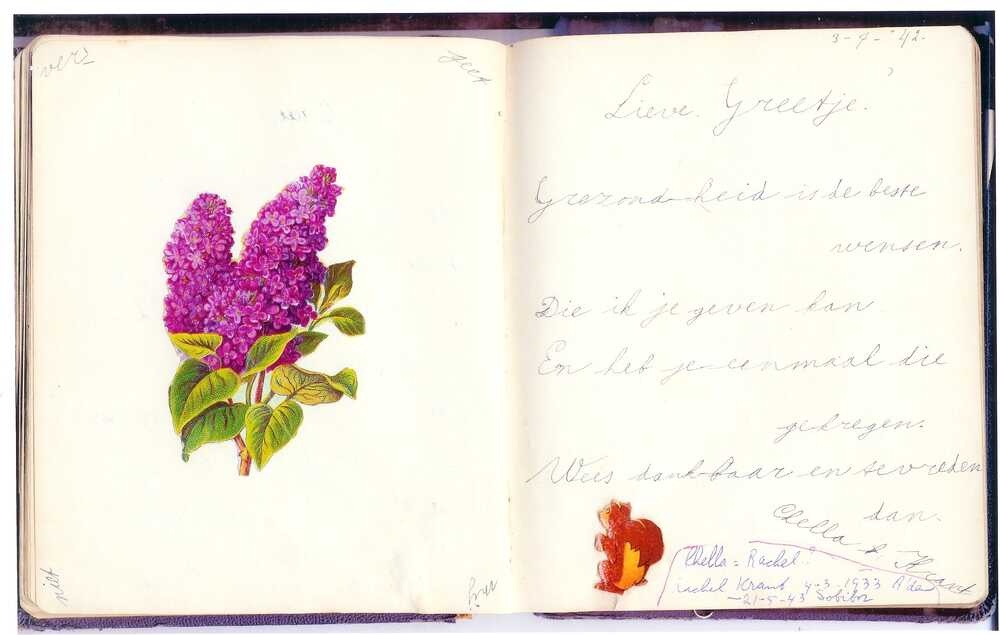 ver
geet
niet
3-4-'42.
Lieve Greetje.
Gezond-heid is de beste
wensen.
Die ik je geven kan
En heb je eenmaal die
gekregen.
Wees dank-baar en tevreden
dan.
Chella Kraut
Chella = Rachel.
Rachel Kraut 4-3-1933 A'dam
-21-5-43 Sobibor